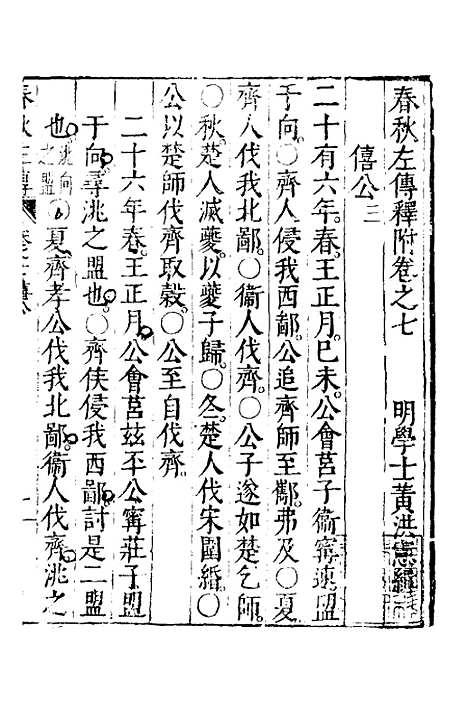 春秋左傳釋附卷之七　　明學士黃洪憲
僖公三
二十有六年春王正月己未公會莒子衛甯速盟
于向○齊人侵我西鄙公追齊師至酅弗及○夏
齊人伐我北鄙○衞人伐齊○公子遂如楚乞師
○秋楚人滅夔以夔子歸○冬楚人伐宋圍緡○
公以楚師伐齊取穀○公至自伐齊
二十六年春王正月公會莒玆㔻公甯莊子盟
于向尋洮之盟也○齊侯侵我西鄙討是二盟
也洮向之盟○夏齊孝公伐我北鄙衞人伐齊洮之